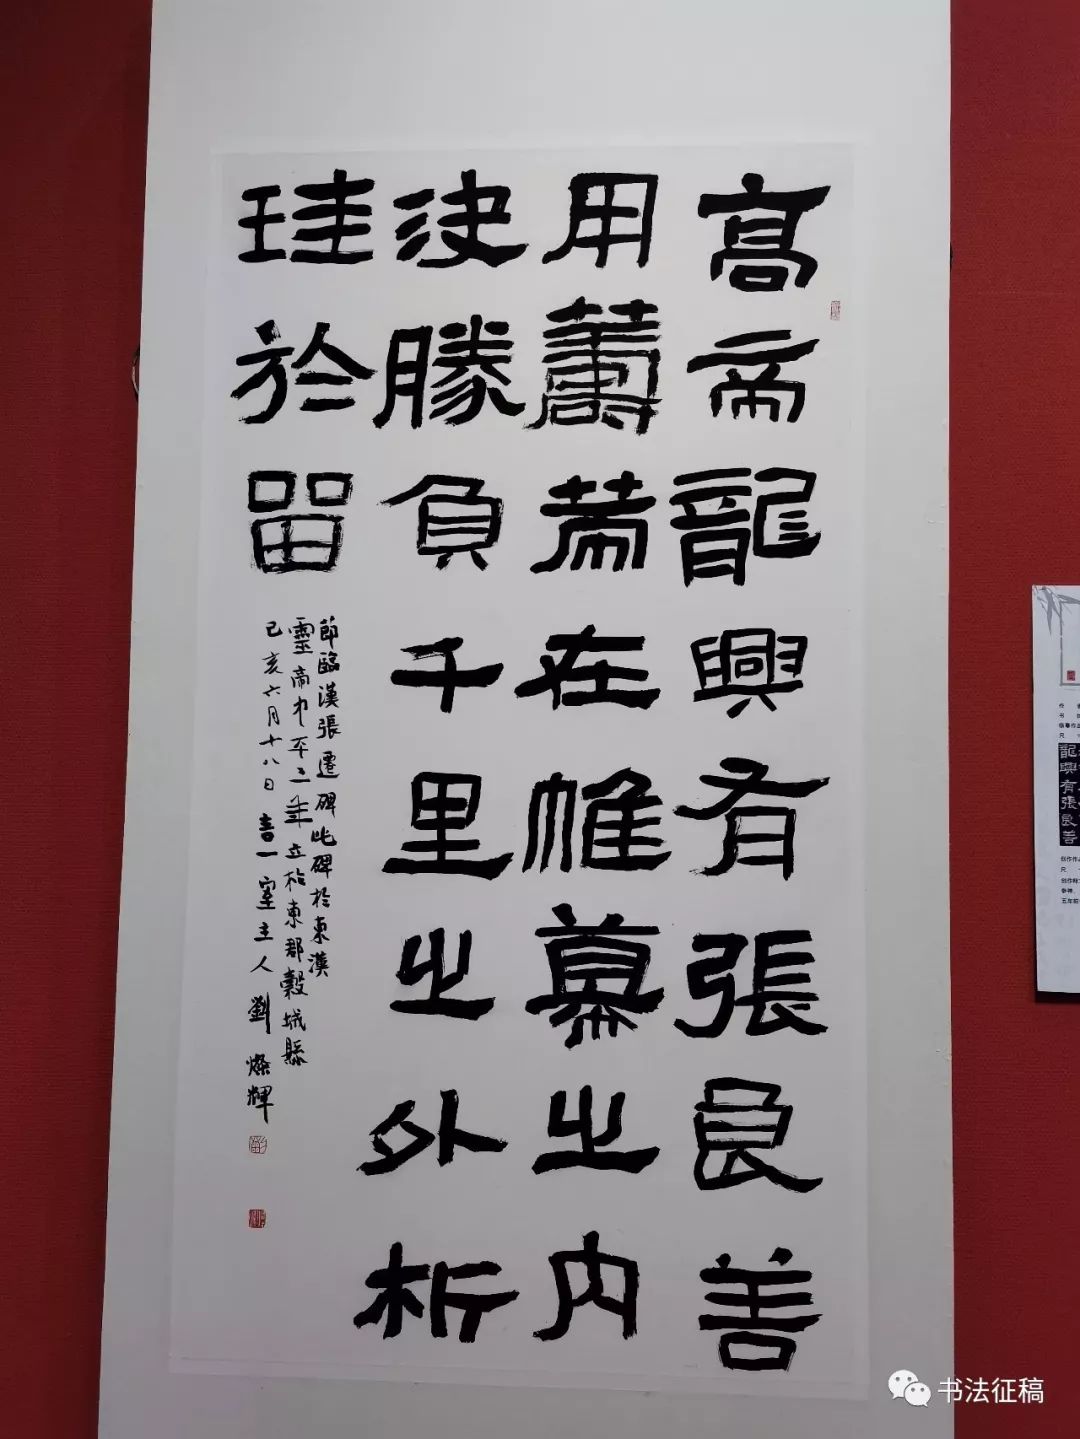 高帝龍興有張良善
用籌䓑在帷幕之内
决勝負千里之外析
珪於留
節臨漢張遷碑此碑於東漢
靈帝中平三年立於東郡穀城縣
己亥六月十八日喜一室主人劉燦輝
龍興有張良善
书法征稿